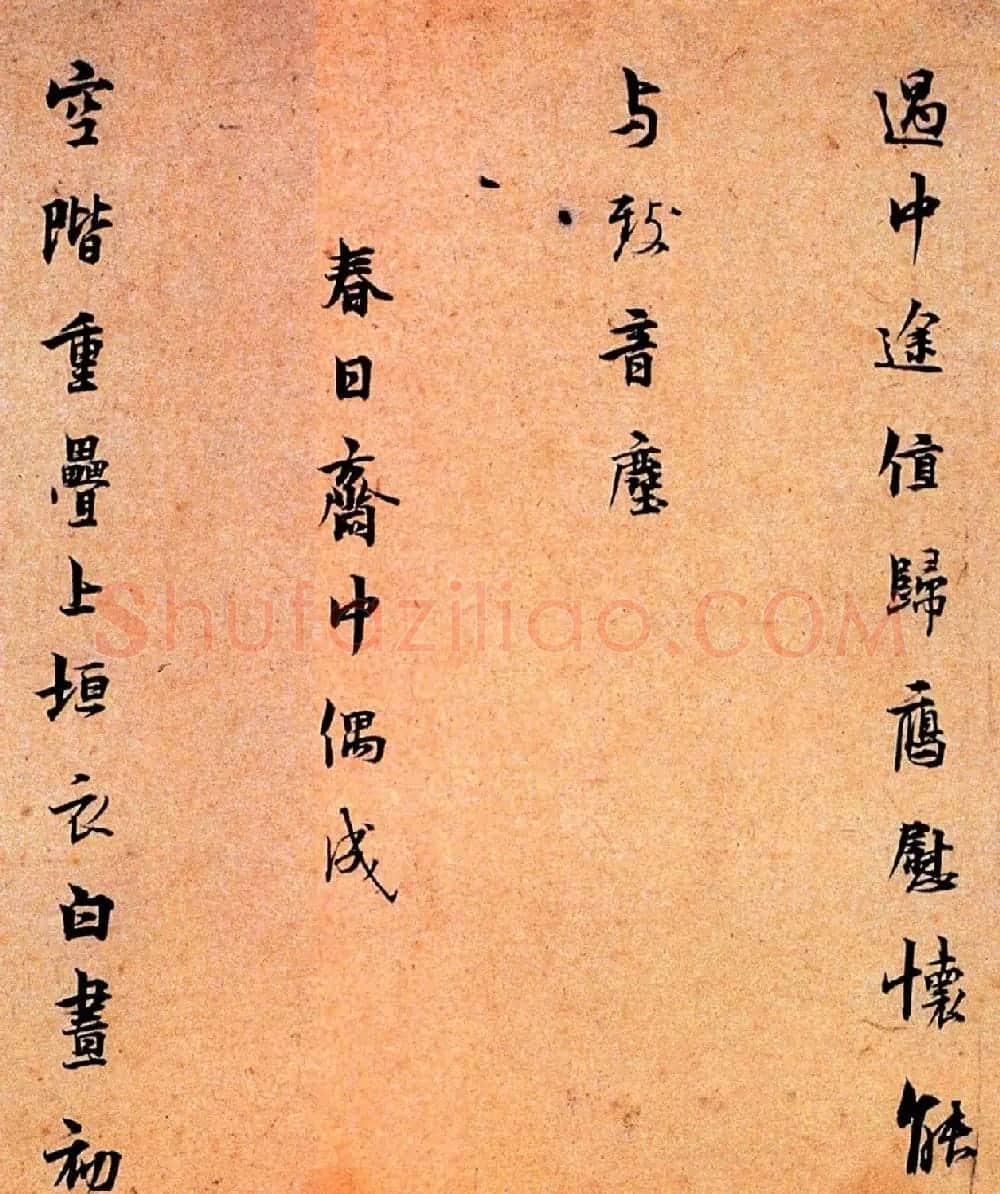 遇中途值歸鴈慰懷能
与致音塵
春日齋中偶成
空階重疊上垣衣白晝初
Shufaziliao.COM